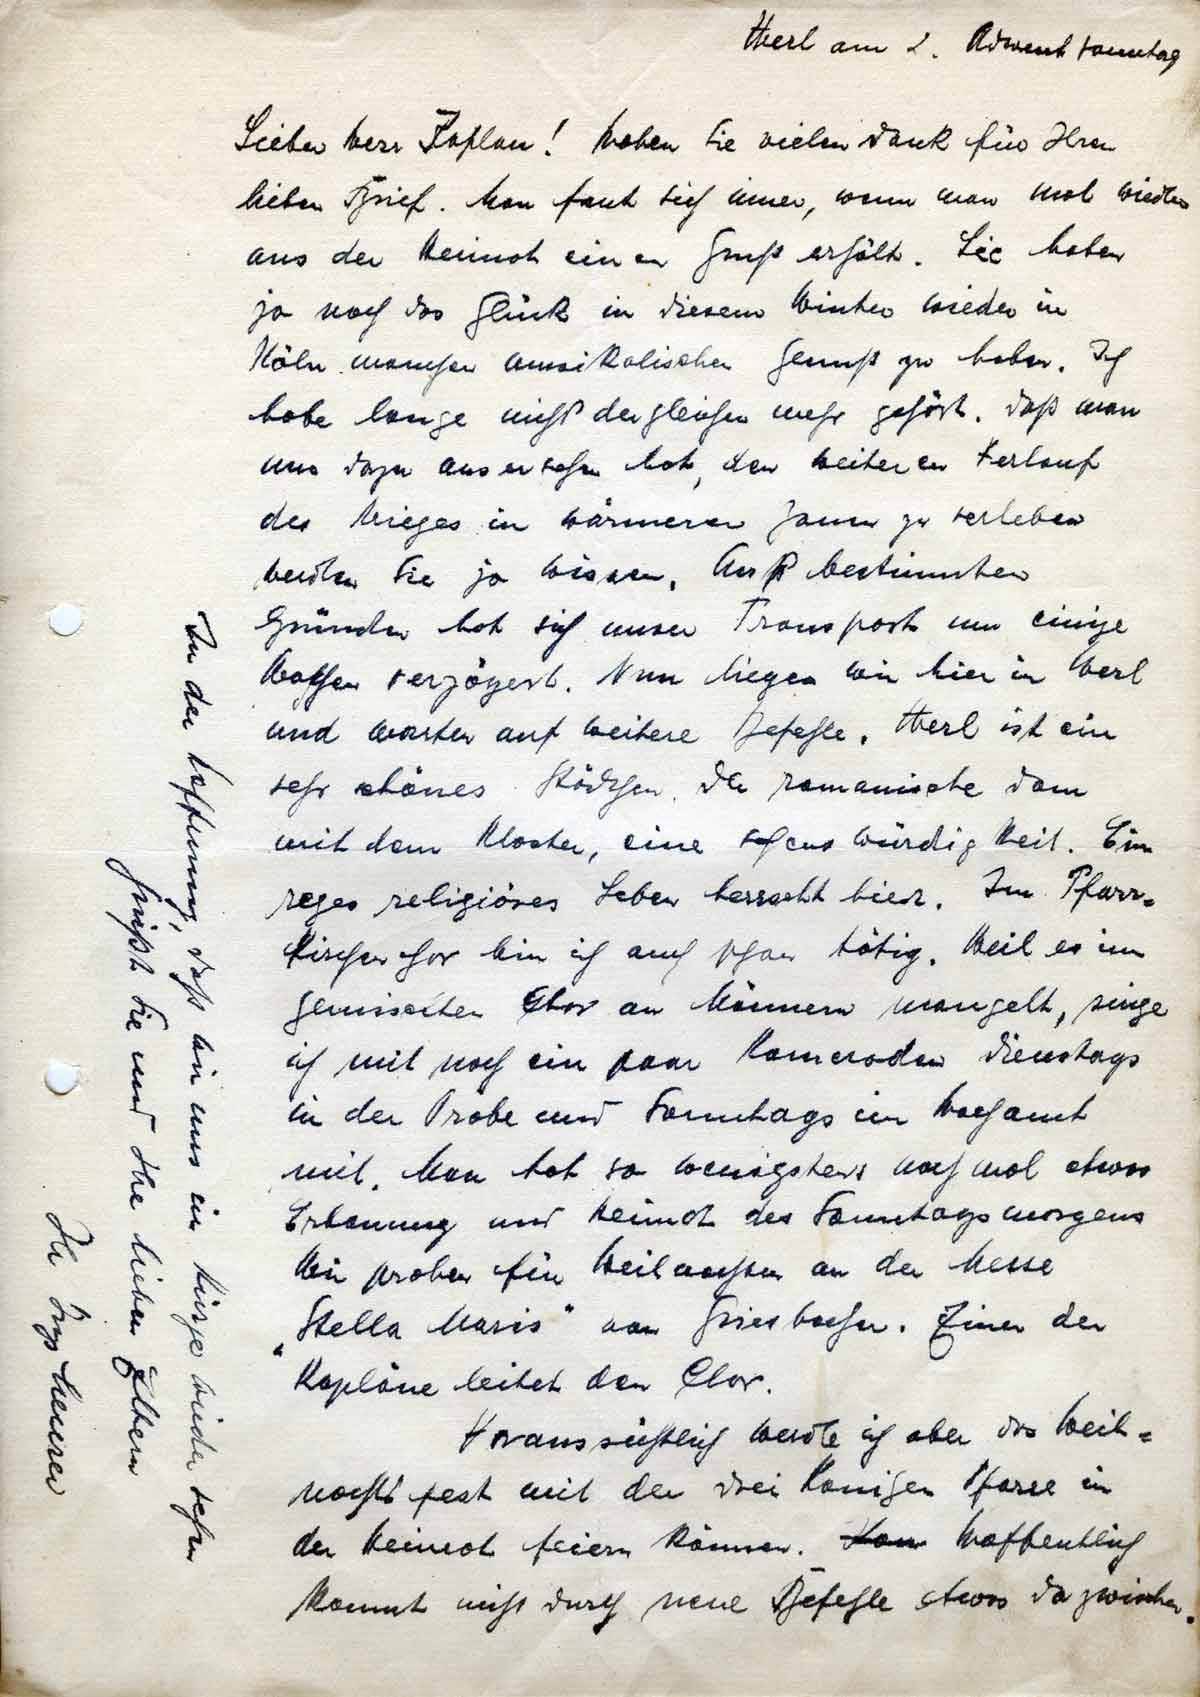 Werl am 2. Adventsonntag
Lieber Herr Kaplan! Haben Sie vielen Dank für Ihren
lieben Brief. Man freut sich immer, wenn man mal wieder
aus der Heimat einen Gruß erhält. Sie haben
ja noch das Glück in diesem Winter wieder in
Köln manchen musikalischen Genuß zu haben. Ich
habe lange nichts dergleichen mehr gehört. Daß man
uns dazu ausersehen hat, den weiteren Verlauf
des Krieges in wärmeren Zonen zu verleben
werden Sie ja wissen. Aus bestimmten
Gründen hat sich unser Transport um einige
Wochen verzögert. Nun liegen wir hier in Werl
und warten auf weitere Befehle. Werl ist ein
sehr schönes Städtchen. Der romanische Dom
mit dem Kloster, eine Sehenswürdigkeit. Ein
reges religiöses Leben herrscht hier. Im Pfarr-
kirchenchor bin ich auch schon tätig. Weil es im
gemischten Chor an Männern mangelt, singe
ich mit noch ein paar Kameraden Dienstags
in der Probe und Sonntags im Hochamt
mit. Man hat so wenigstens noch mal etwas
Erbauung und Heimat des Sonntagsmorgens
Wir proben für Weihnachten an der Messe
„Stella Maris" von Griesbacher. Einer der
Kapläne leitet den Chor.
Voraussichtlich werde ich aber das Weih-
nachtsfest mit der drei Königen Pfarre in
der Heimat feiern können. Hoffentlich
kommt nichts durch neue Befehle etwas dazwischen.
In der Hoffnung, daß wir uns in Kürze wieder sehen
grüßt Sie und Ihre lieben Eltern
Ihr